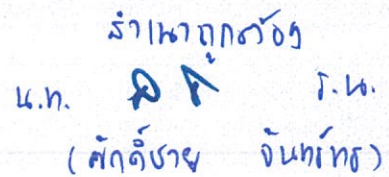 สำเนาถูกต้อง
น.ท. ร.น.
(ศักดิ์ชาย จันทร์ทร)